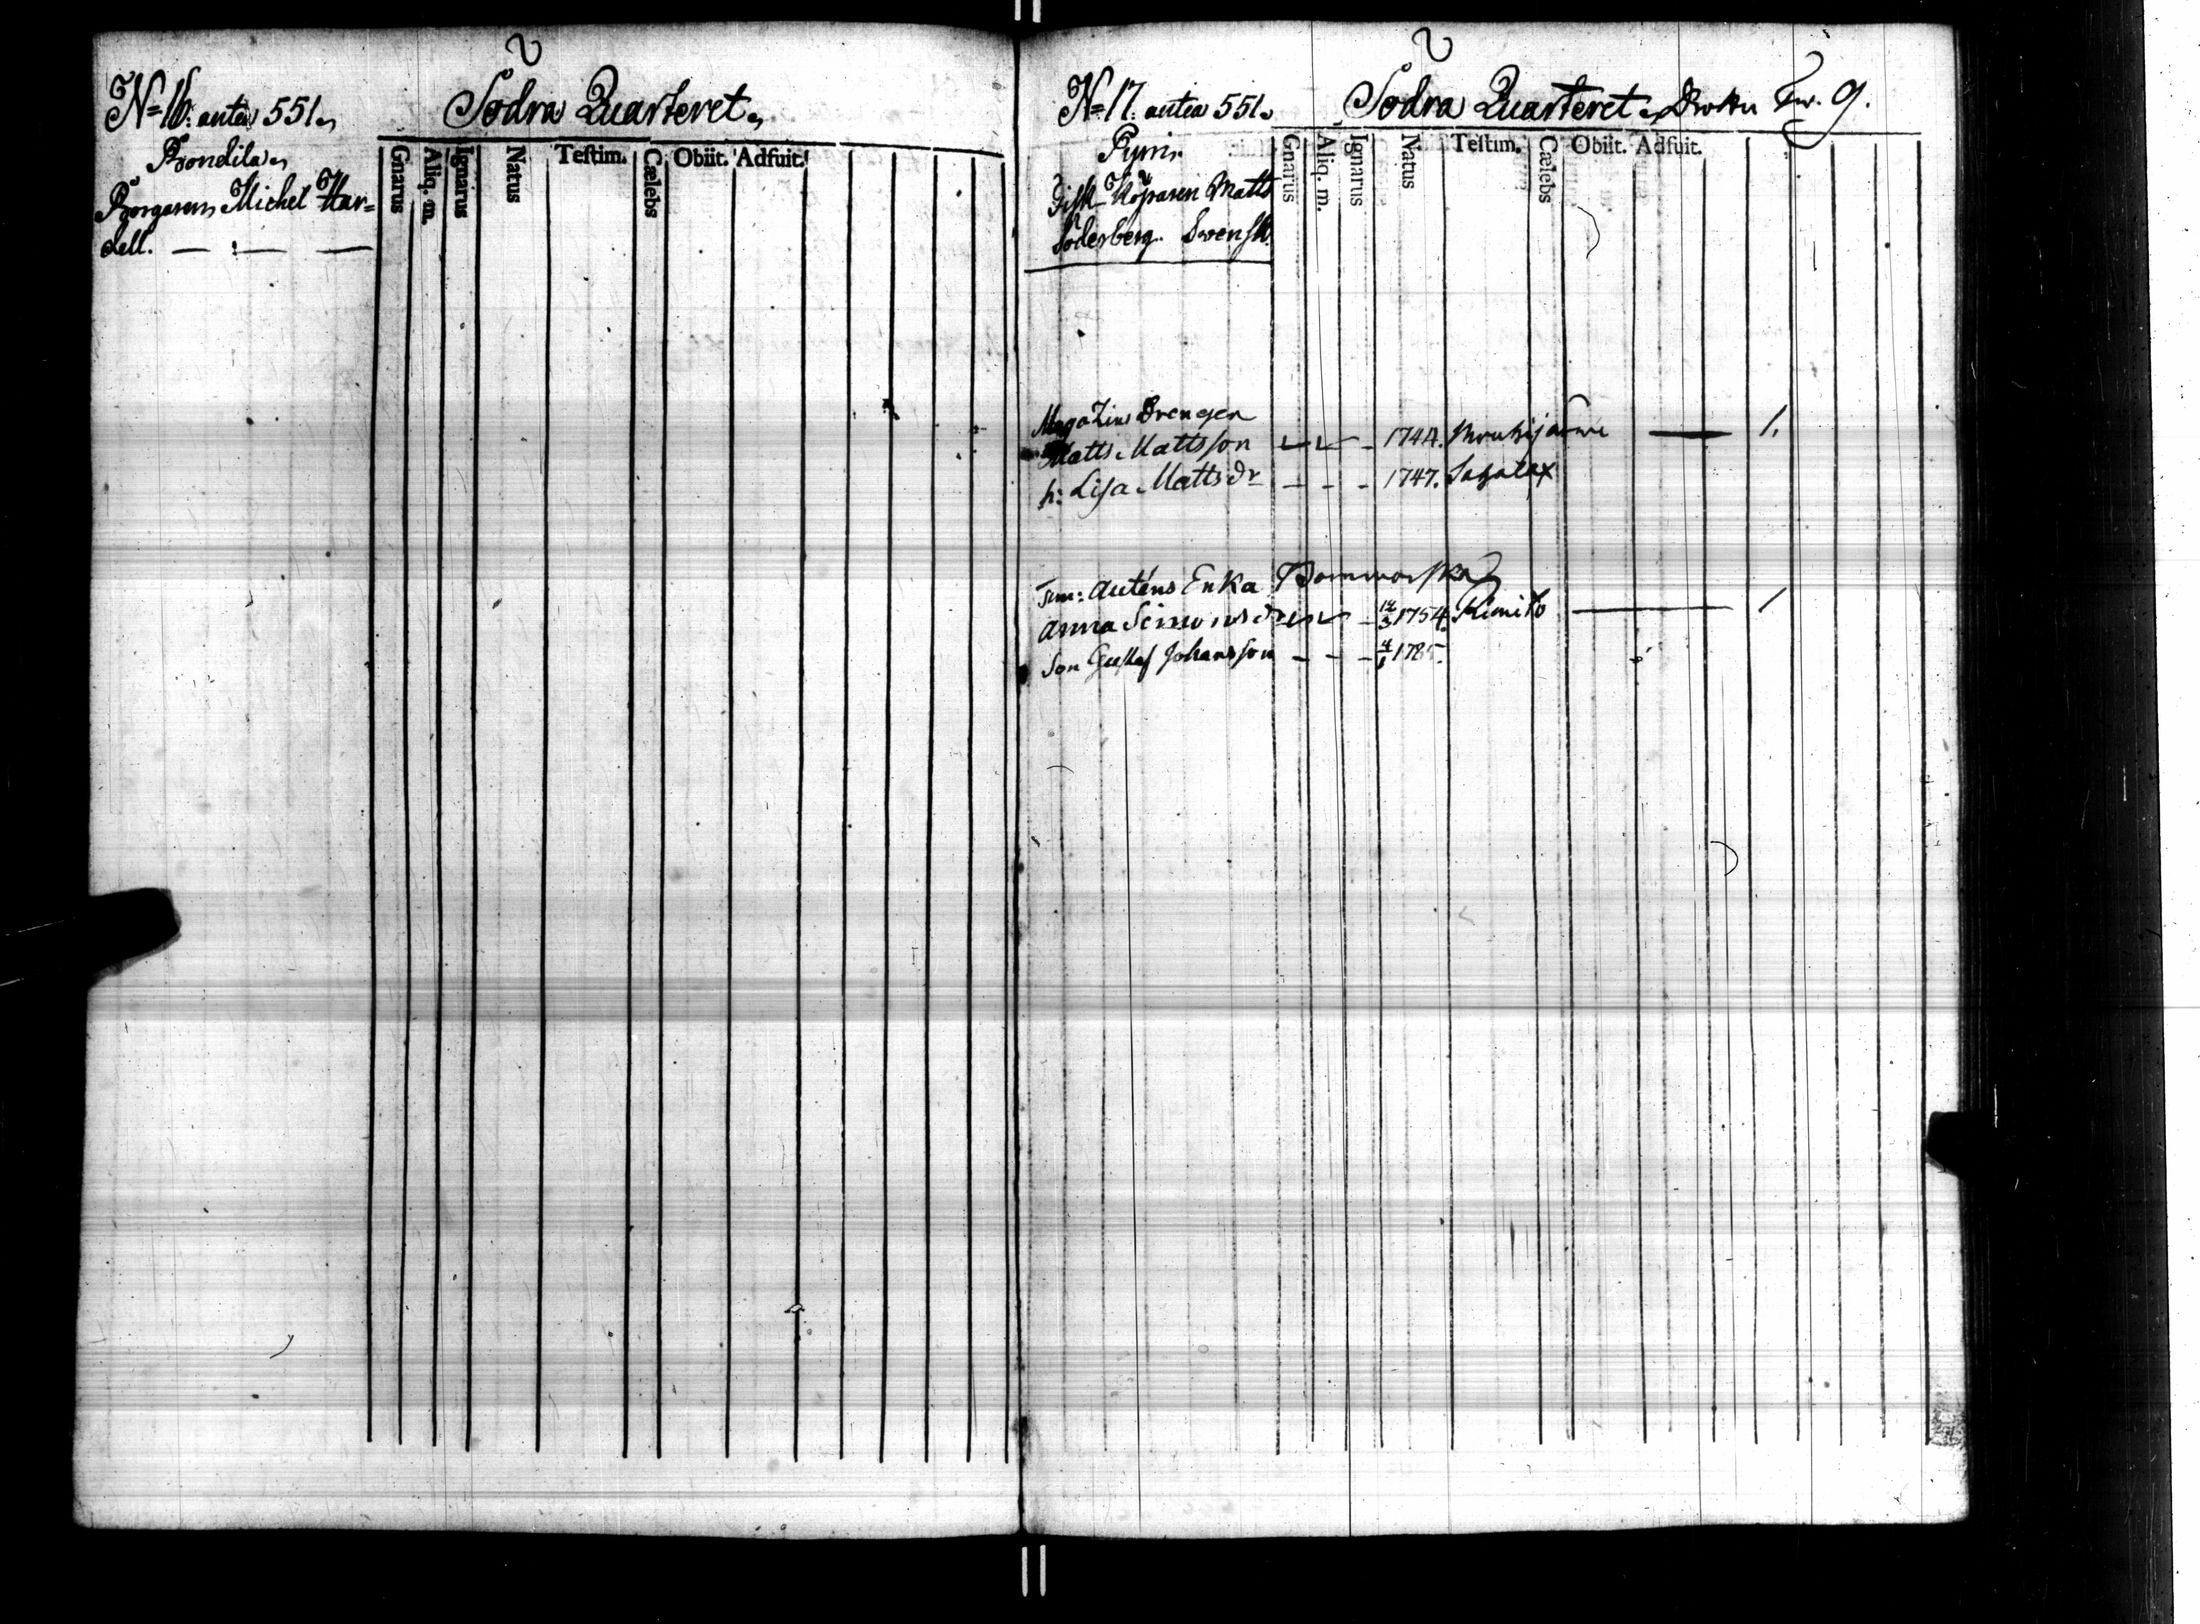 N= 16: antea 551.
Södra Quarteret.
Bondila.
Borgaren Michel Har=
dell.
Gnarus Aliq. m. Ignarus Natus Teſtim. Cælebs Obiit. Adfuit.
N= 17. antea 551.
Södra Quarteret. 9.
Pyrri.
Fisk-Köparen Matts
Söderberg. Swensk
Gnarus Aliq. m. Ignarus Natus Teſtim. Cælebs Obiit. Adfuit.
Magazins Drengen
Matts Mattsson 1744. Mouhijärwi 1.
h: Lisa Mattsdr 1747. Sagalax
Enka
Anna Simonsdr 1754. Kimito 1
Son Gustaf Johansson 1785.